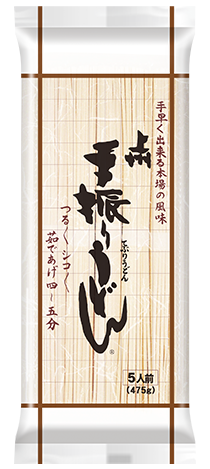 手早く出来る本場の風味
手振りうどん
てぶりうどん
つる〱シコ〱
茹であげ四〜五分
5人前
(475g)